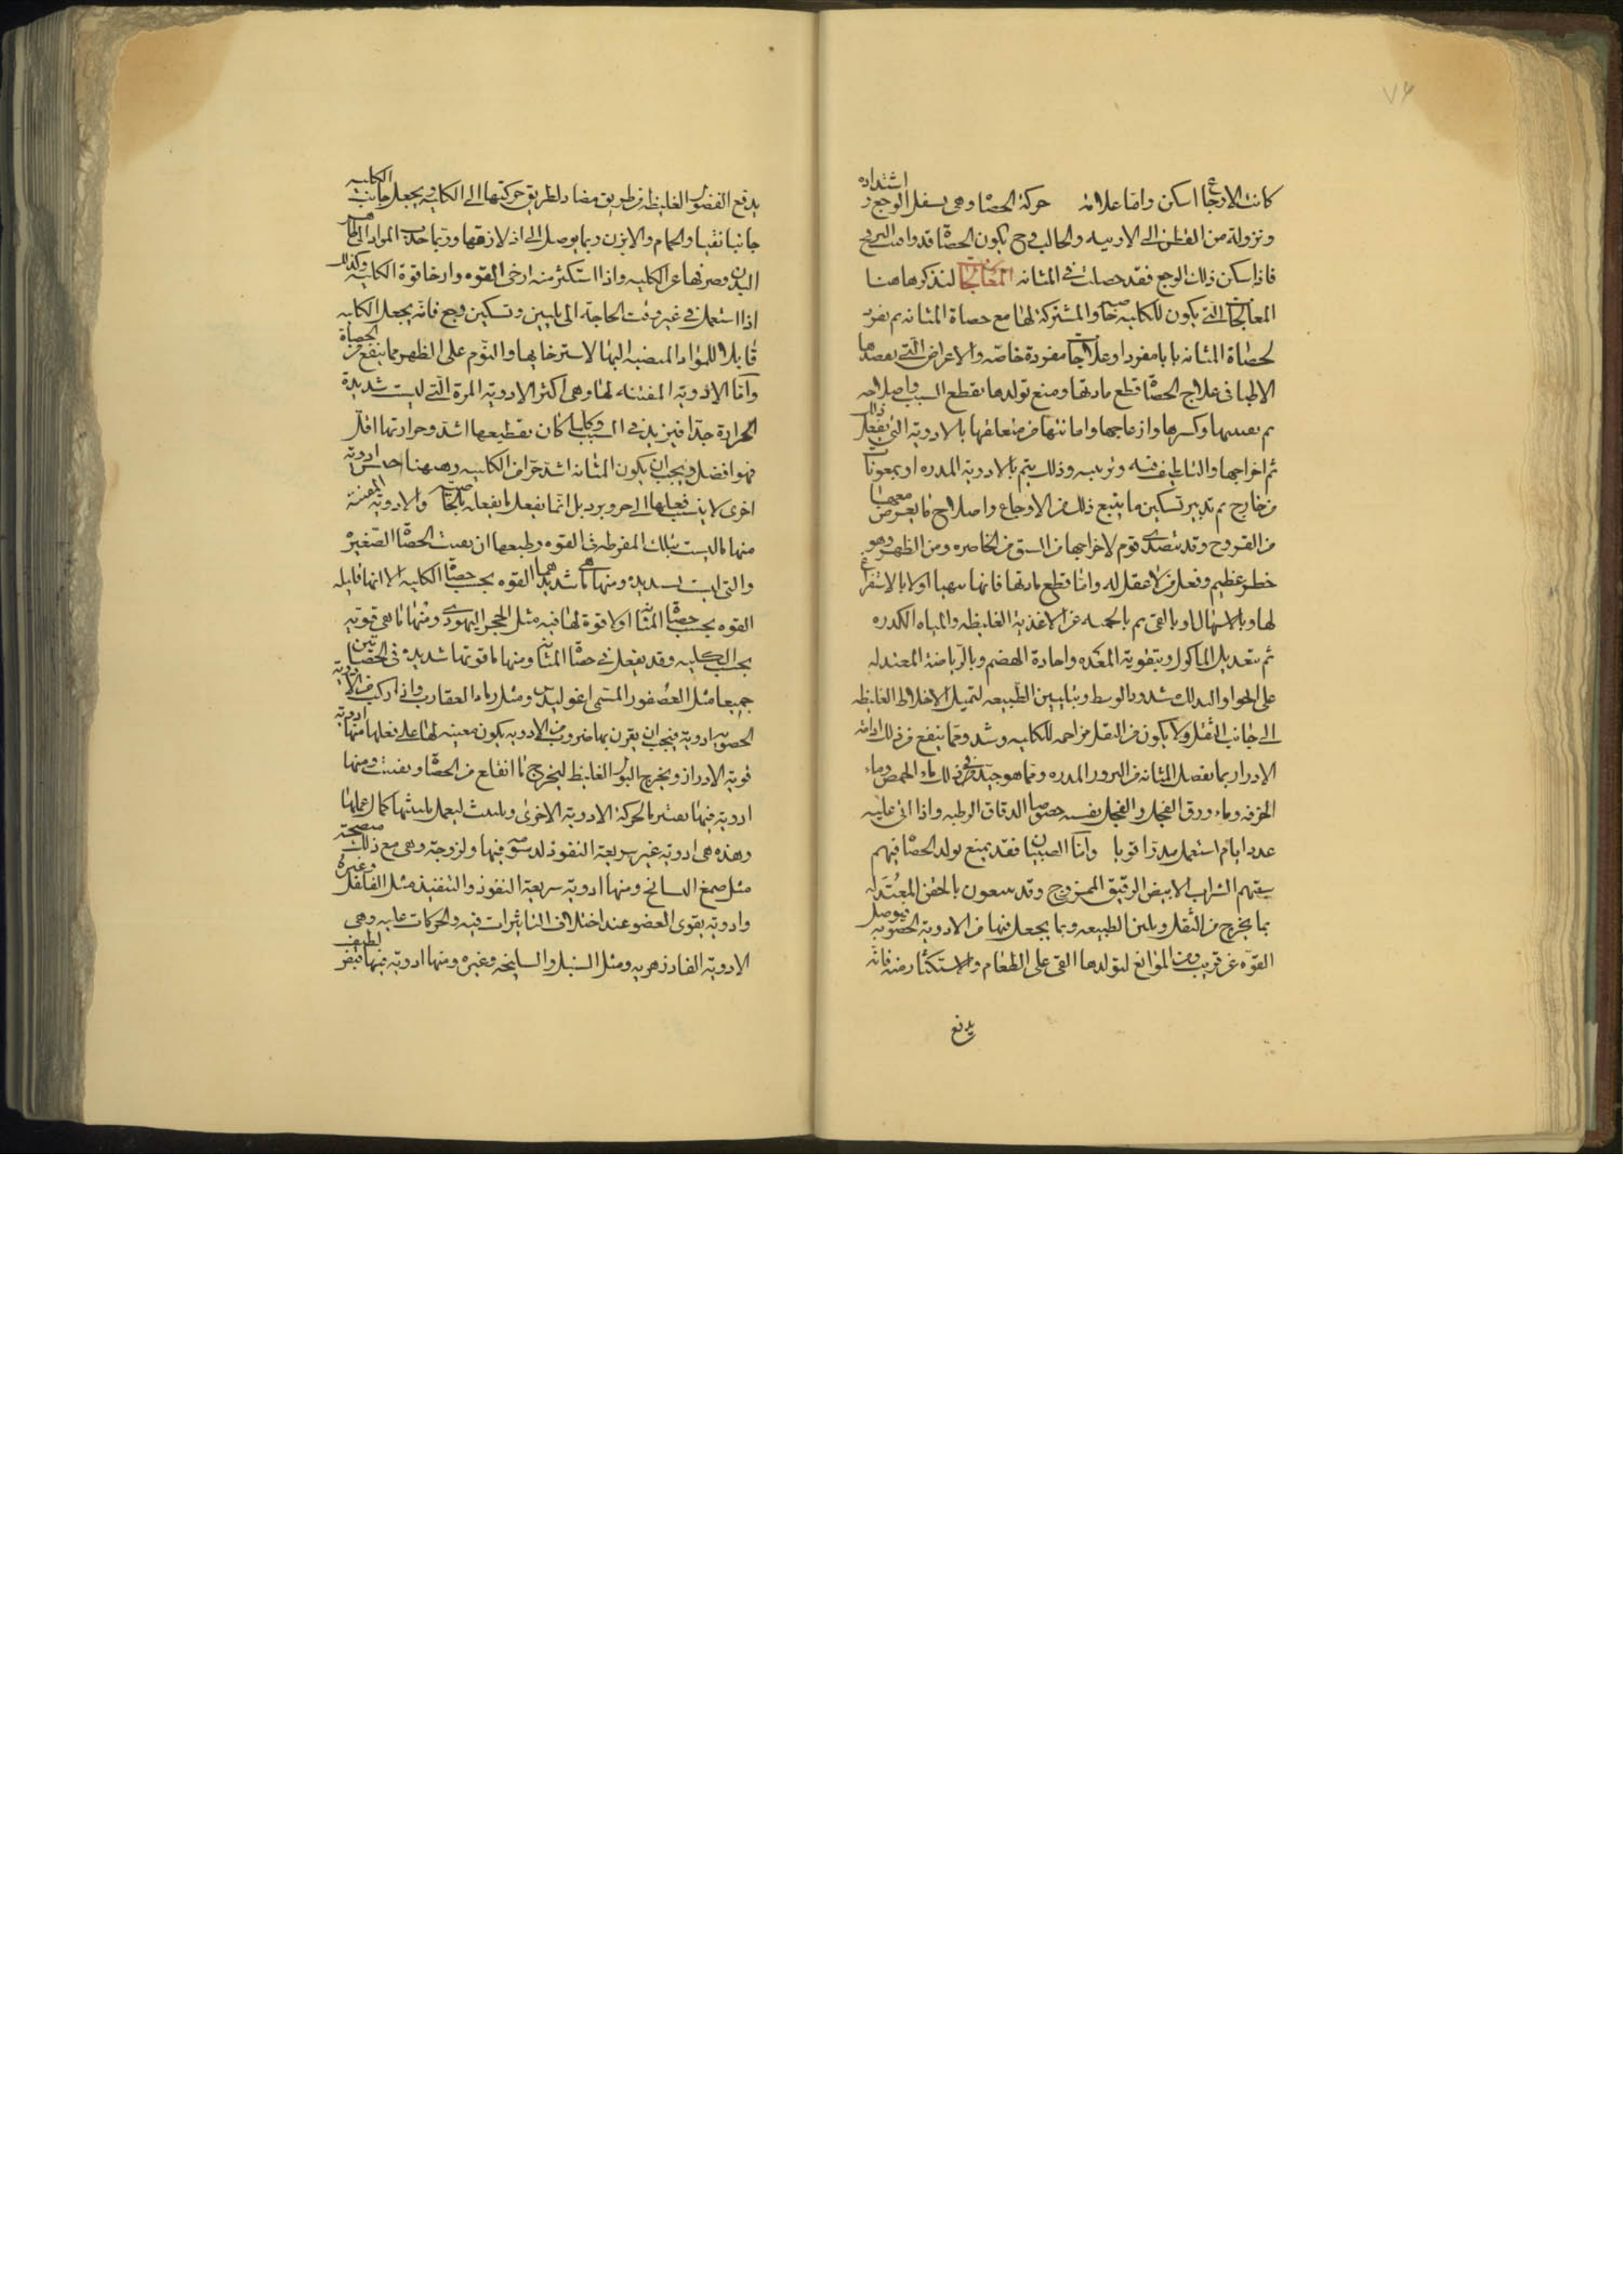 كانت الاوجاع اسكن واما علامة حركة الحصاة وهى يسفل الوجع و اشتداده
ونزوله من القطن الى الاربيه والحالب وح يكون الحصاة قد وافت البربخ
فاذا سكن ذلك الوجع فقد حصلت فى المثانه المعالجات لنذكر هاهنا
المعالجات التى يكون للكليه خاصه والمشتركة لها مع حصاة المثانه ثم نفرد
لحصاة المثانه بابا مفردا وعلاجا مفردة خاصه والاعراض التى يقصدها
الاطبا فى علاج الحصاة قطع مادتها ومنع تولدها بقطع السبب واصلاحه
ثم تفتيتها وكسرها وازعاجها وابانتها من متعلقها بالادوية التى يفعل ذلك
ثم اخراجها والتلطيف فيه وتربيبه وذلك يتم بالادوية المدره او بمعونات
من خارج ثم تدبير تسكين ما يتبع ذلك من الاوجاع واصلاح ما يعرض معها
من القروح وقد يتصدى قوم لاخراجها من الشق من الخاصره ومن الظهر وهو
خطر عظيم وفعل من لا عقل له واما قطع مادتها فانما يتهيا اولا بالاستفراغ
لها وبالاسهال او بالقى ثم بالحميه عن الاغذية الغليظه والمياه الكدره
ثم بتعديل الماكول وبتقوية المعده واجادة الهضم وبالرياضة المعتدله
على الخوا والدلك مشدود الوسط وبتليين الطبيعه لتميل الاخلاط الغليظه
الى جانب الثفل ولا يكون من الثفل مزاحمه للكليه وشد ومما ينفع من ذلك ادامة
الادرار بما يفصل المثانه من البزور المدره ومما هو جيد فى ذلك ماء الحمص وماء
الحرفه وماء ورق الفجل والفجل نفسه خصوصا الدقاق الرطبه واذا اتى عليه
عدد ايام استعمل مدرا قويا واما الصبيان فقد يمنع تولد الحصاة فيهم
سقيهم الشراب الابيض الرقيق الممزوج وقد ينتفعون بالحقن المعتدله
بما يخرج من الثفل ويلين الطبيعه وبما يجعل فيها من الادوية الحصوية فيوصل
القوة عن قريب ومن الموانع لتولدها القى على الطعام والاستكثار منه فانه
يدفع
يدفع الفضول الغليظه من طريق مضاد لطريق حركتها الى الكليه ويجعل جانب الكليه
جانبا نقيا والحمام والابزن ربما يوصل الى اذلاقها وربما جذب المواد الى ظاهر
البدن وصرفها عن الكليه واذا استكثر منه ارخى القوه وارخا قوة الكليه وكذلك
اذا استعمل فى غير وقت الحاجة الى تليين وتسكين وجع فانه يجعل الكليه
قابلا للمواد المنصبه اليها لاسترخايها والنوم على الظهر مما ينفع من الحصاة
واما الادوية المفتته لها وهى اكثر الادوية المرة التى ليست شديدة
الحرارة جدا فيزيد فى السبب وكلما كان تقطيعها اشد وحرارتها اقل
فهو افضل ويجب ان يكون المثانه اشد حرا من الكليه وههنا ادوية
اخرى لا ينسب فعلها الى حر وبرد بل انما يفعل ما يفعله بالخاصيه والادوية المفتته
منها ما ليست بتلك المفرطه فى القوه وطبعها ان تفتت الحصاة الصغيره
والتى ليست بشديده ومنها ما هى شديدة القوه بحسب حصاة الكليه الا انها قليله
القوه بحسب حصاة المثانه او لا قوة لها فيه مثل الحجر اليهودى ومنها ما هى قويه
بحسب الكليه وقد يفعل فى حصاة المثانه ومنها ما قوتها شديدة فى الحصاتين
جميعا مثل العصفور المسمى اغوليدس ومثل رماد العقارب واذا ركب من الادوية
الحصويه ادوية فيجب ان يقرن بها ضروب من الادويه يكون معينه لها على فعلها منها ادوية
قوية الادرار ويخرج البول الغليظ ليخرج ما انقلع من الحصاة ويفتت ومنها
ادوية فيها بالحركة الادوية الاخرى ويلبث ليعمل بلبثها كمال عملها
وهذه هى ادوية غير سريعة النفوذ لدسومه فيها ولزوجة وهى مع ذلك منضجة
مثل صمغ البسفايج ومنها ادوية سريعة النفوذ والتنفيذ مثل الفلفل وغيره
وادوية يقوى العضو عند اختلاف التاثيرات فيه والحركات عليه وهى
الادوية الفادزهريه ومثل السنبل والسليخه وغيره ومنها ادوية فيها قبض لطيف